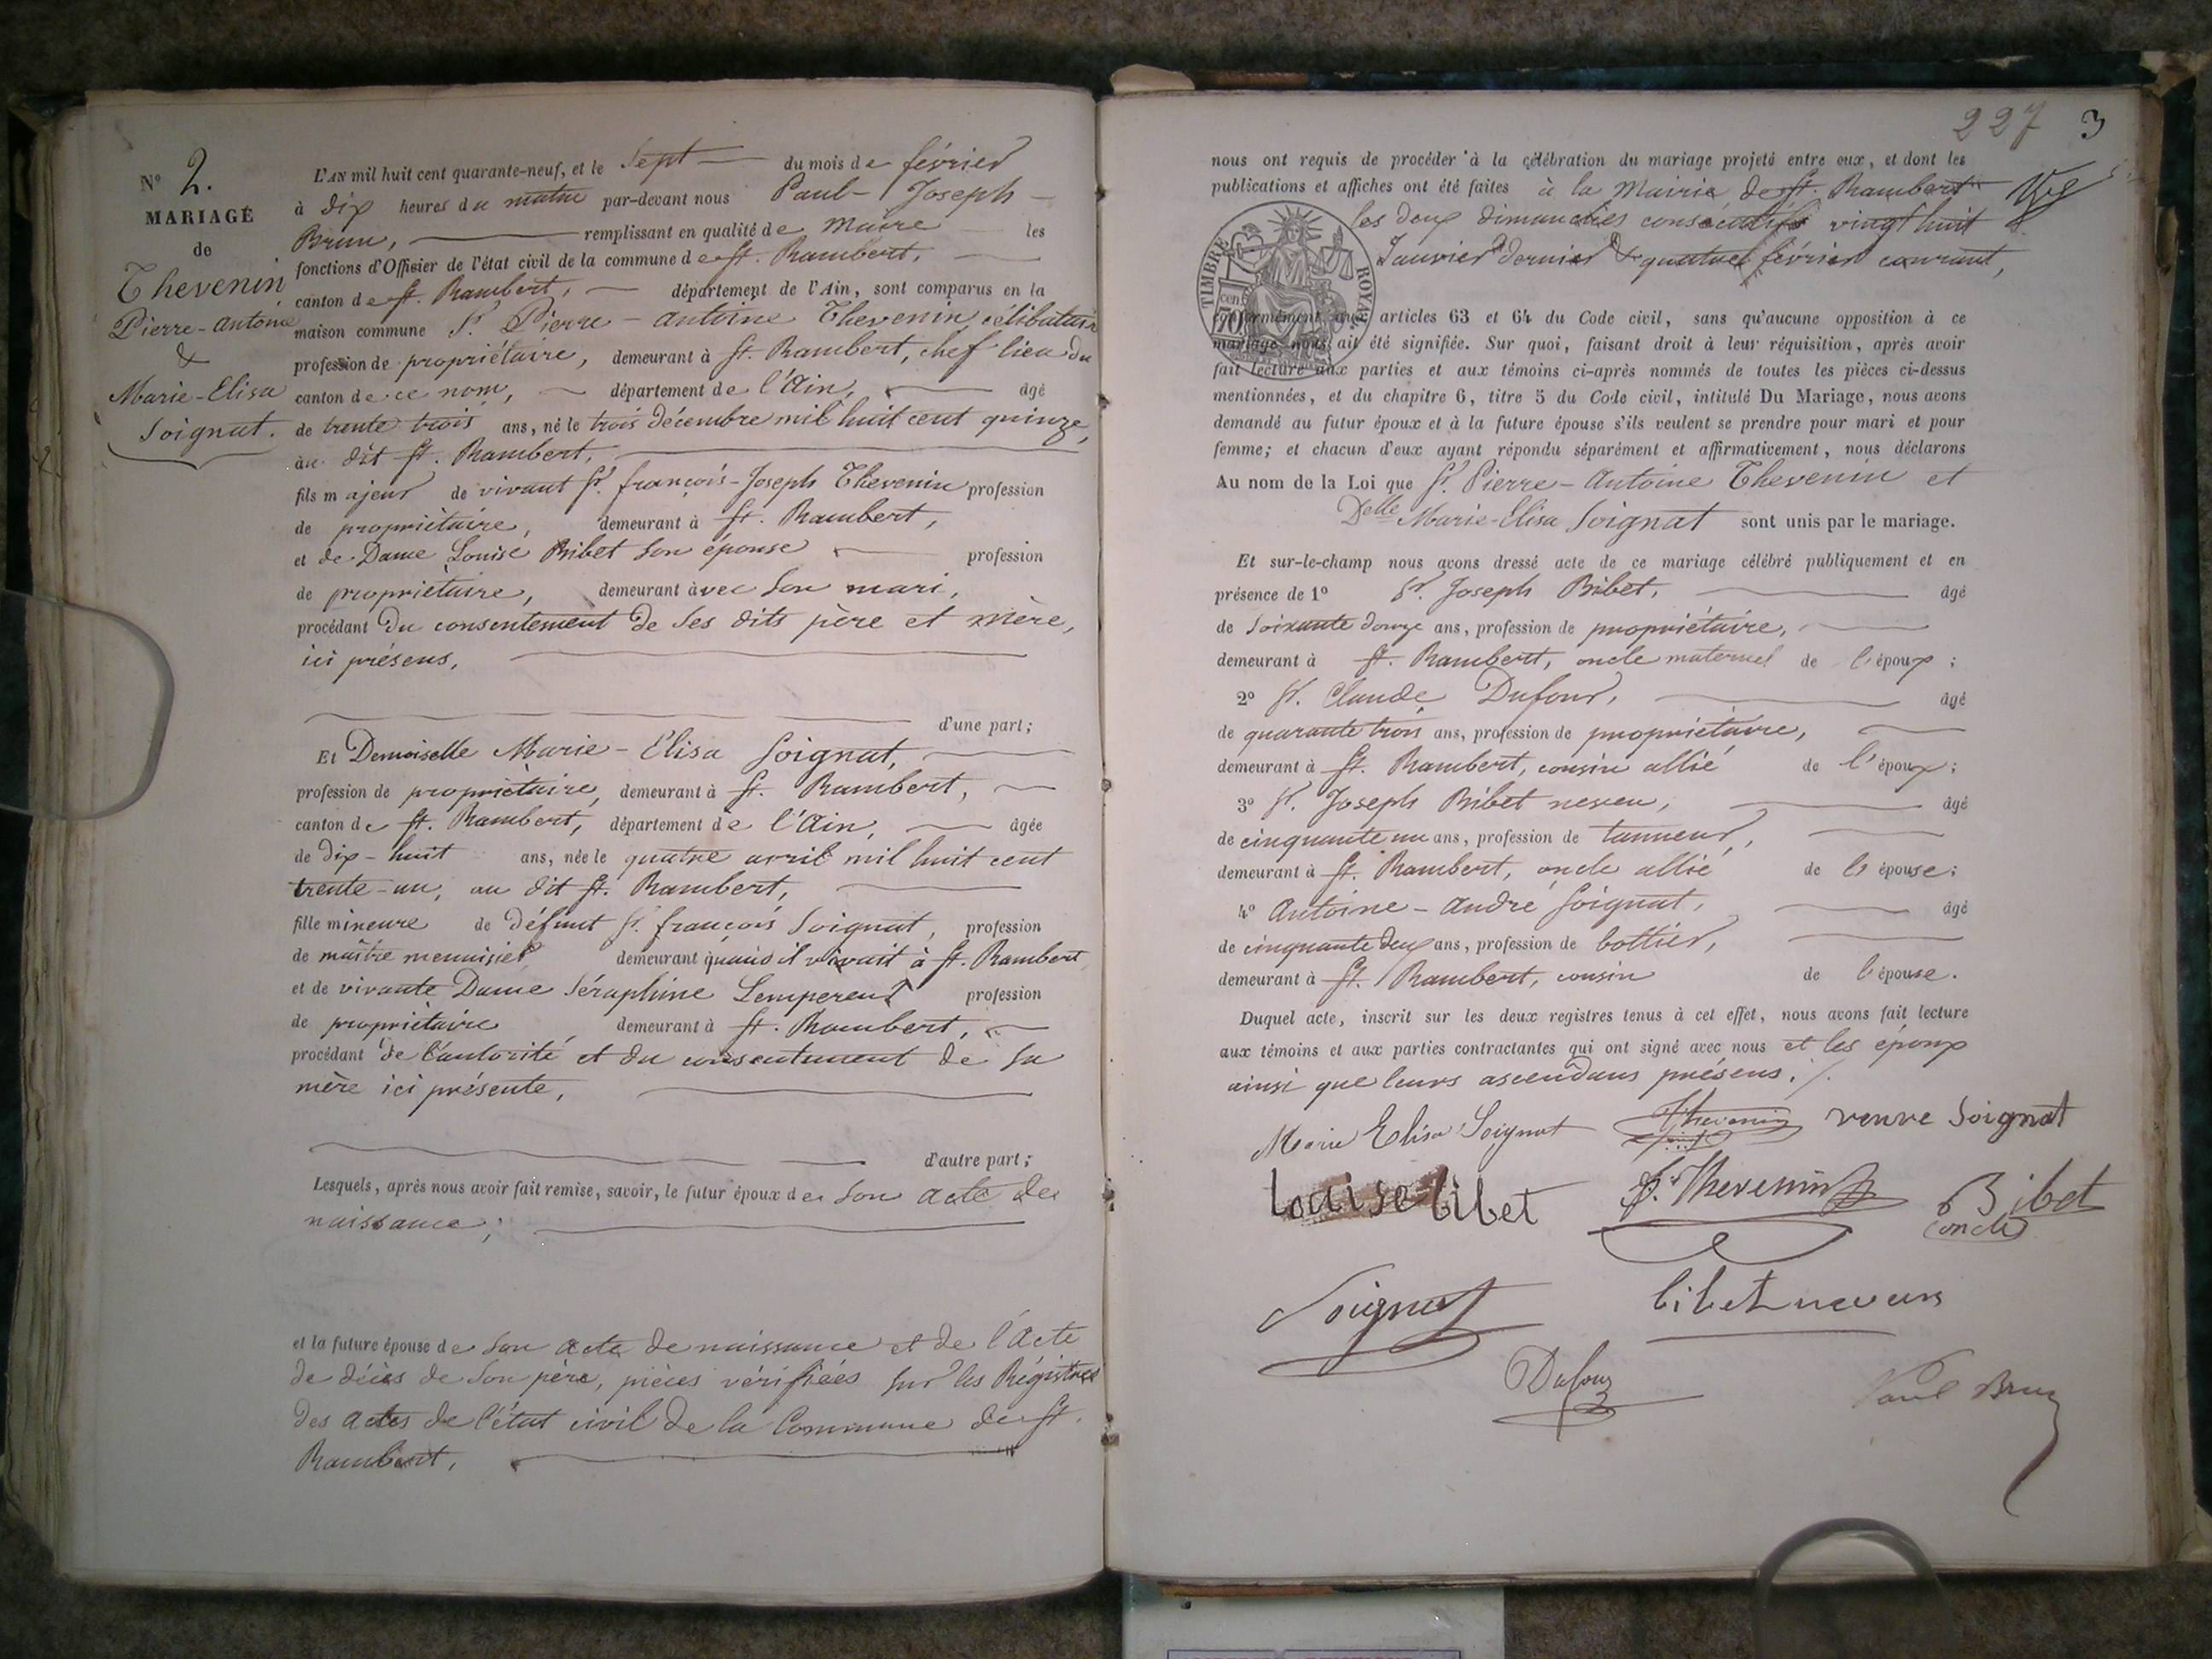 N° 2.
MARIAGE
de
Thevenin
Pierre-Antoine
&
Marie-Elisa
Soignat.
L'AN mil huit cent quarante-neuf, et le Sept du mois de février
à dix heures du matin par-devant nous Paul-Joseph
Brun, remplissant en qualité de Maire les
fonctions d'Officier de l'état civil de la commune de St. Rambert,
canton de St. Rambert, département de l'Ain, sont comparus en la
maison commune Sr. Pierre-Antoine Thevenin, célibataire
profession de propriétaire, demeurant à St. Rambert, chef lieu du
canton de ce nom, département de l'Ain, âgé
de trente trois ans, né le trois décembre mil huit cent quinze,
au dit St. Rambert,
fils majeur de vivant Sr. françois-Joseph Thevenin profession
de propriétaire, demeurant à St. Rambert,
et de Dame Louise Bibet son épouse profession
de propriétaire, demeurant avec son mari,
procédant du consentement de ses dits père et mère,
ici présens,
d'une part;
Et Demoiselle Marie-Elisa Soignat,
profession de propriétaire, demeurant à St. Rambert,
canton de St. Rambert, département de l'Ain, âgée
de dix-huit ans, née le quatre avril mil huit cent
trente-un, au dit St. Rambert,
fille mineure de défunt Sr. françois Soignat, profession
de maître menuisier demeurant quand il vivait à St. Rambert
et de vivante Dame Séraphine Lempereur profession
de propriétaire demeurant à St. Rambert,
procédant de l'autorité et du consentement de sa
mère ici présente,
d'autre part;
Lesquels, après nous avoir fait remise, savoir, le futur époux de son acte de
naissance;
et la future épouse de son acte de naissance et de l'Acte
de décès de son père, pièces vérifiées sur les Régistres
des actes de l'état civil de la Commune de St.
Rambert,
227 3
nous ont requis de procéder à la célébration du mariage projeté entre eux, et dont les
publications et affiches ont été faites à la Mairie de St. Rambert
les deux dimanches consécutifs vingt huit
Janvier dernier & quatre février courant,
TIMBRE ROYAL
70 cen
conformément aux articles 63 et 64 du Code civil, sans qu'aucune opposition à ce
mariage nous ait été signifiée. Sur quoi, faisant droit à leur réquisition, après avoir
fait lecture aux parties et aux témoins ci-après nommés de toutes les pièces ci-dessus
mentionnées, et du chapitre 6, titre 5 du Code civil, intitulé Du Mariage, nous avons
demandé au futur époux et à la future épouse s'ils veulent se prendre pour mari et pour
femme; et chacun d'eux ayant répondu séparément et affirmativement, nous déclarons
Au nom de la Loi que Sr. Pierre-Antoine Thevenin et
Delle Marie-Elisa Soignat sont unis par le mariage.
Et sur-le-champ nous avons dressé acte de ce mariage célébré publiquement et en
présence de 1° Sr. Joseph Bibet, âgé
de soixante douze ans, profession de propriétaire,
demeurant à St. Rambert, oncle maternel de l'époux;
2° Sr. Claude Dufour, âgé
de quarante trois ans, profession de propriétaire,
demeurant à St. Rambert, cousin allié de l'époux;
3° Sr. Joseph Bibet neveu, âgé
de cinquante un ans, profession de tanneur,
demeurant à St. Rambert, oncle allié de l'épouse;
4° Antoine-André Soignat, âgé
de cinquante deux ans, profession de bottier,
demeurant à St. Rambert, cousin de l'épouse.
Duquel acte, inscrit sur les deux registres tenus à cet effet, nous avons fait lecture
aux témoins et aux parties contractantes qui ont signé avec nous et les époux
ainsi que leurs ascendans présens.
Marie Elisa Soignat Thevenin veuve Soignat
Louise bibet Thevenin Bibet
oncle
Soignat bibet neveu
Dufour Paul Brun